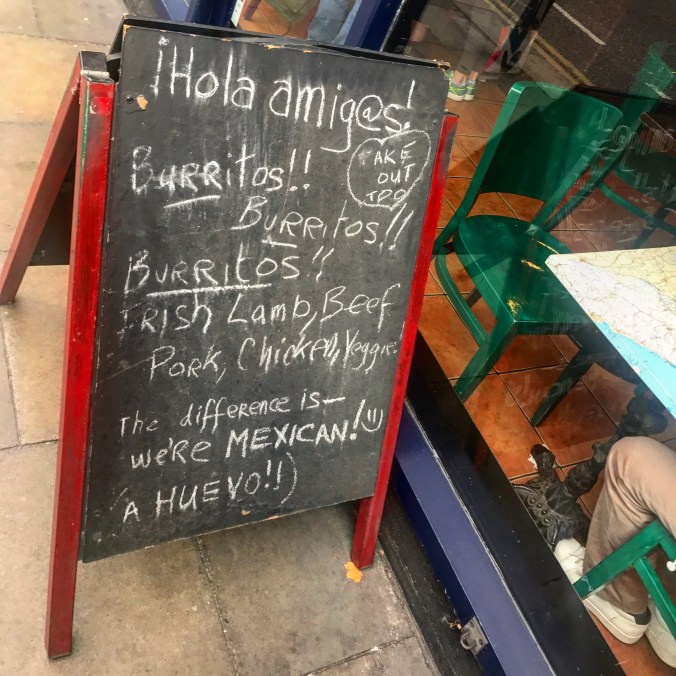 ¡Hola amig@s!
TAKE
OUT
TOO
BURRitos!!
BURRitos!!
BURRITOS!!
IRISH Lamb, Beef
PORK, Chicken, Veggie.
The difference is—
we're MEXICAN!
A HUEVO!!)